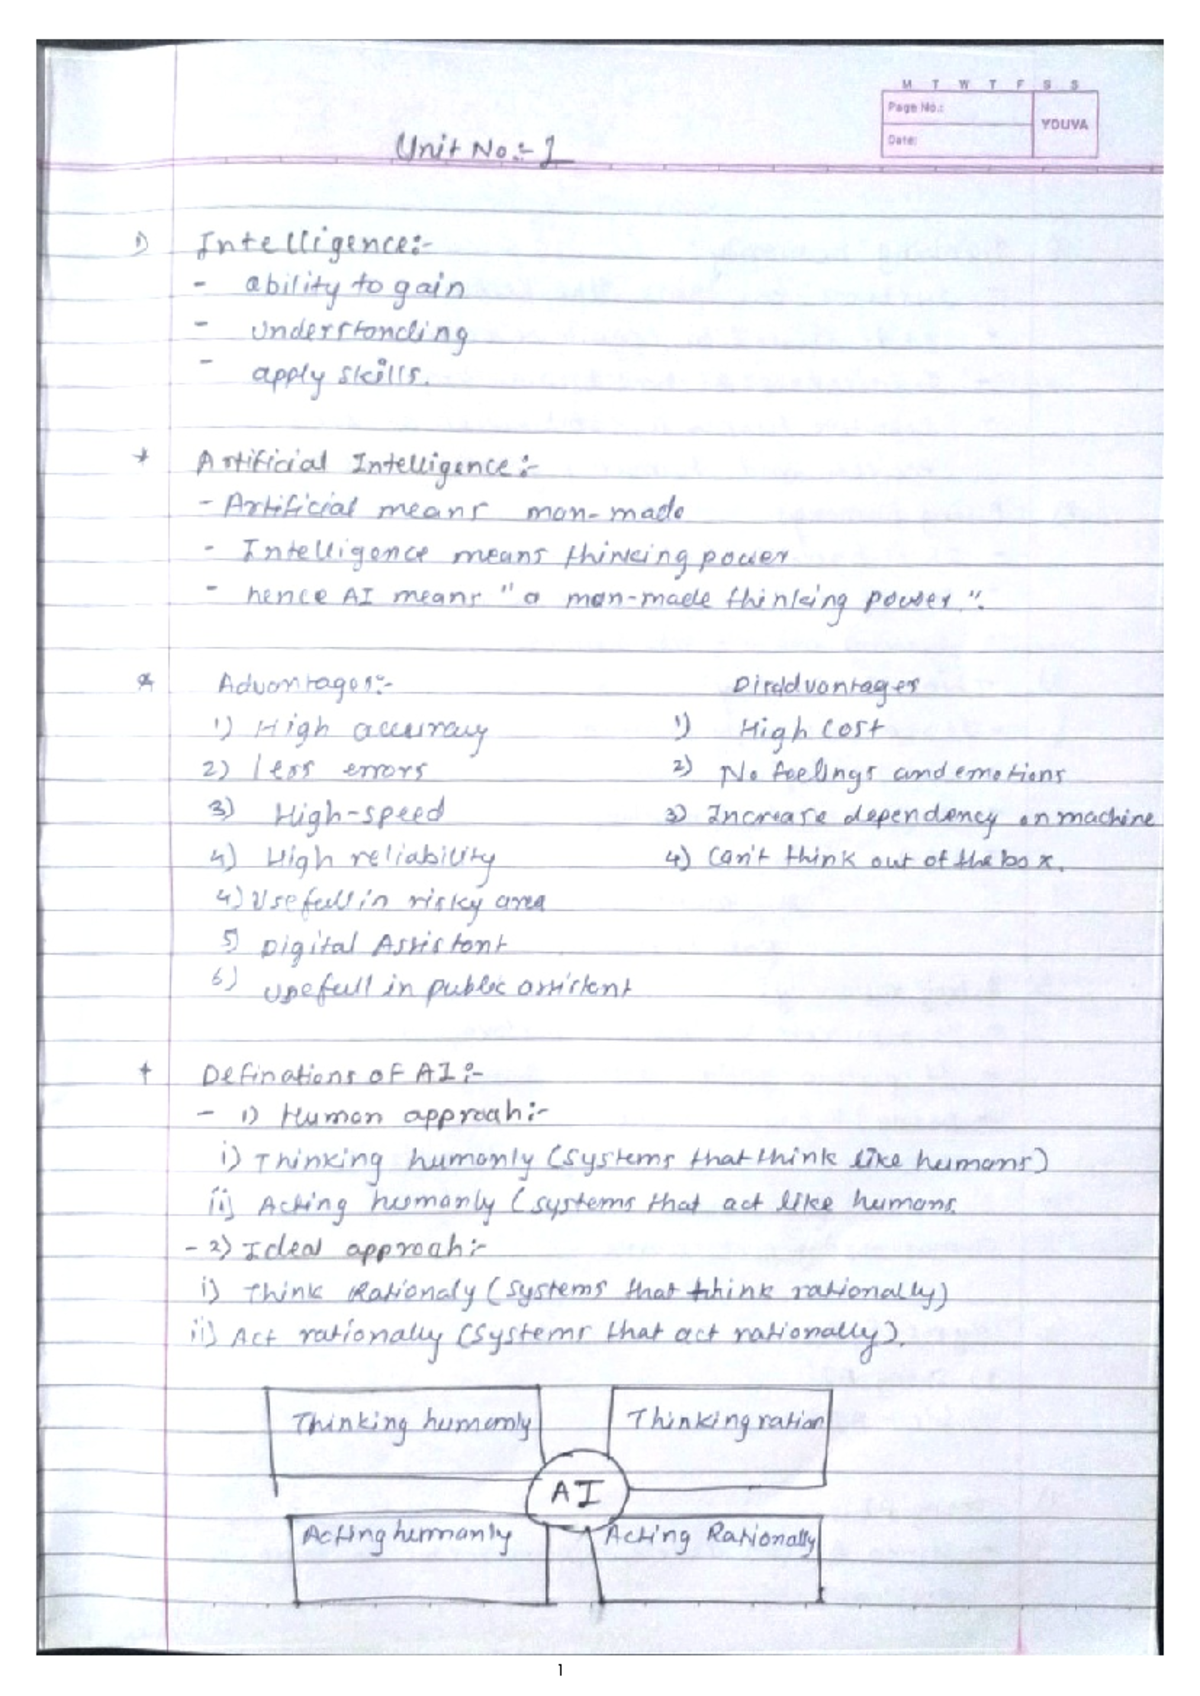 M T W T F S S
Page No.:
YOUVA
Date:
Unit No.:- 1
1) Intelligence:-
- ability to gain
- understanding
- apply skills.
* Artificial Intelligence:-
- Artificial means man-made
- Intelligence means thinking power
- hence AI means "a man-made thinking power".
* Advantages:- Disadvantages
1) High accuracy 1) High Cost
2) less errors 2) No feelings and emotions
3) High-speed 3) Increase dependency on machine
4) High reliability 4) Can't think out of the box.
4) Usefull in risky area
5) Digital Assistant
6) Usefull in public assistant
* Definations of AI:-
- 1) Human approah:-
i) Thinking humanly (systems that think like humans)
ii) Acting humanly (systems that act like humans
- 2) Ideal approah:-
i) Think Rationaly (systems that think rationally)
ii) Act rationally (systems that act rationally).
Thinking humanly Thinking ration
AI
Acting humanly Acting Rationally
1